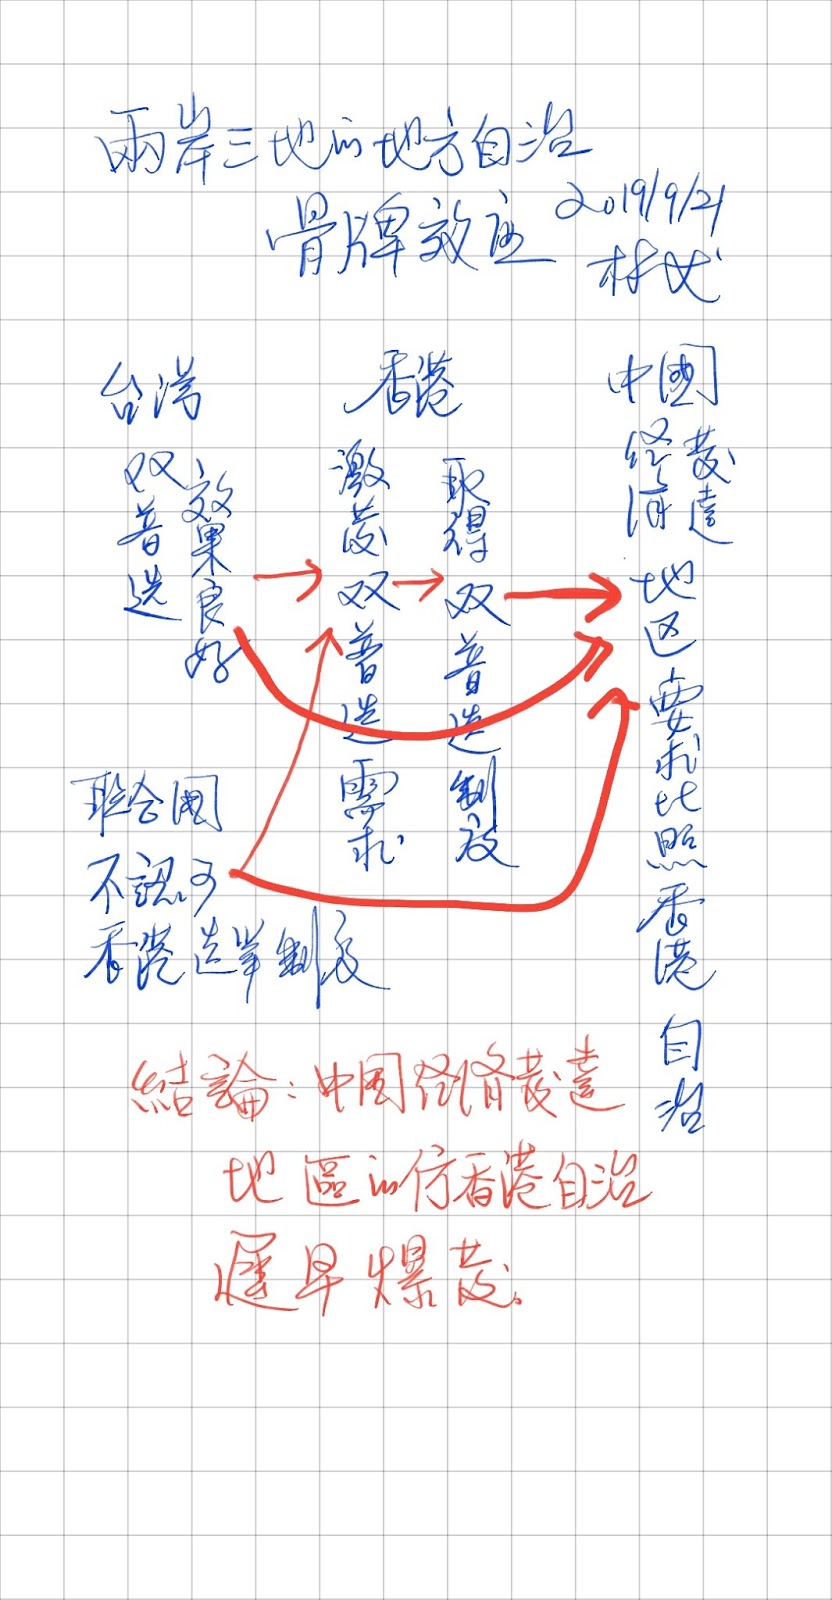 兩岸三地的地方自治
骨牌效应 2019/9/21
台湾
双普选
效果良好
香港
激发双普选需求
取得双普选制度
中國
经济
發達
地区要求比照香港自治
联合国
不認可
香港选举制度
結論：中国经济發達
地區的仿香港自治
遲早爆發。